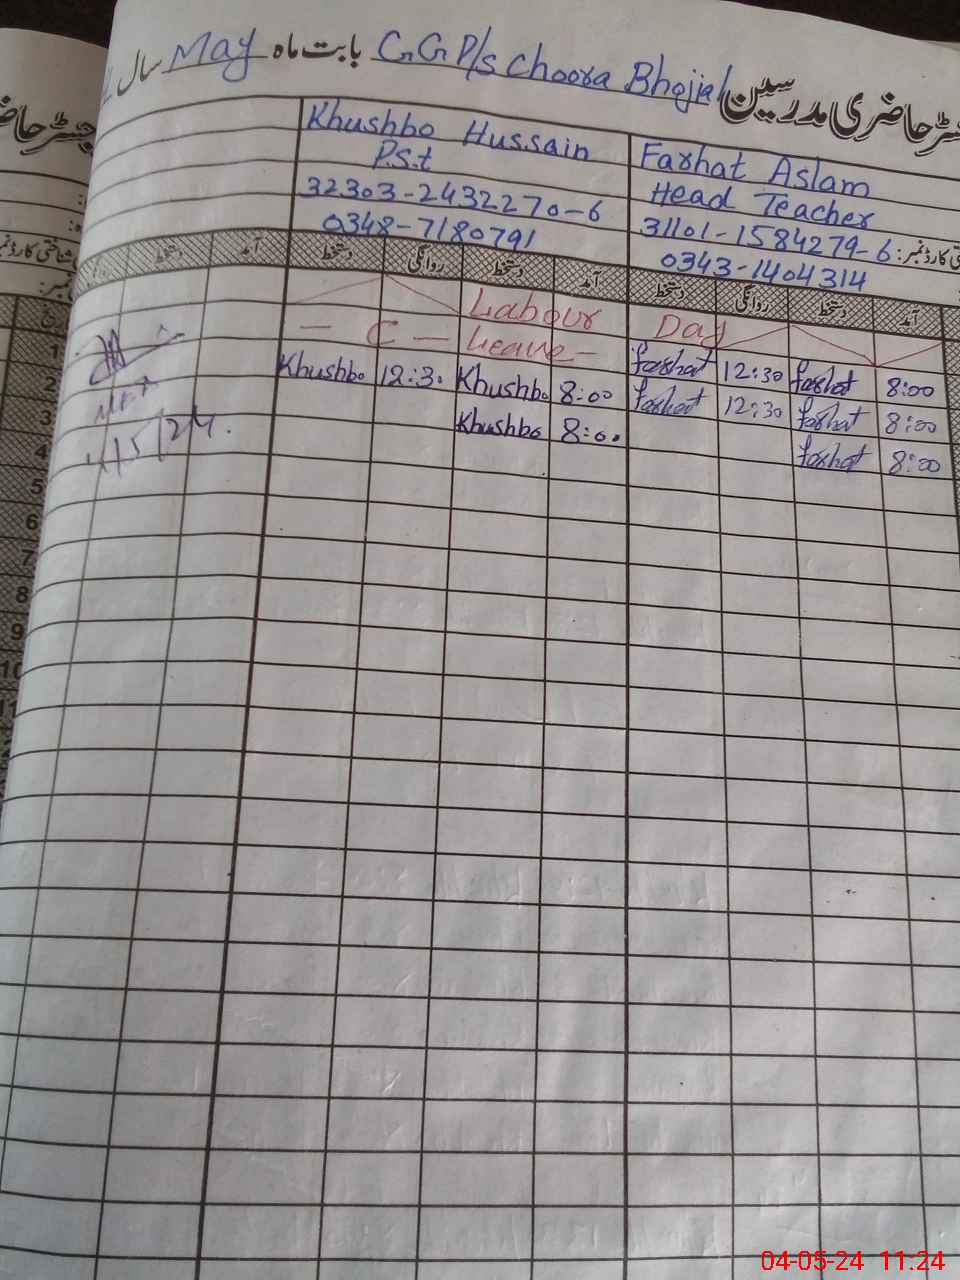 رجسٹر حاضری مدرسین GGP/s Choora Bhojial بابت ماہ May سال
Khushbo Hussain
P.S.t
32303-2432270-6
0348-7180791
Farhat Aslam
Head Teacher
31101-1584279-6
0343-1404314
آمد دستخط روانگی دستخط آمد دستخط روانگی دستخط آمد دستخط
Labour Day
1 — C — Leave — Farhat 12:30 Farhat 8:00
2 Khushbo 12:30 Khushbo 8:00 Farhat 12:30 Farhat 8:00
3 Khushbo 8:00 Farhat 8:00
4
4/5/24.
5
6
7
8
9
10
11
04-05-24 11:24